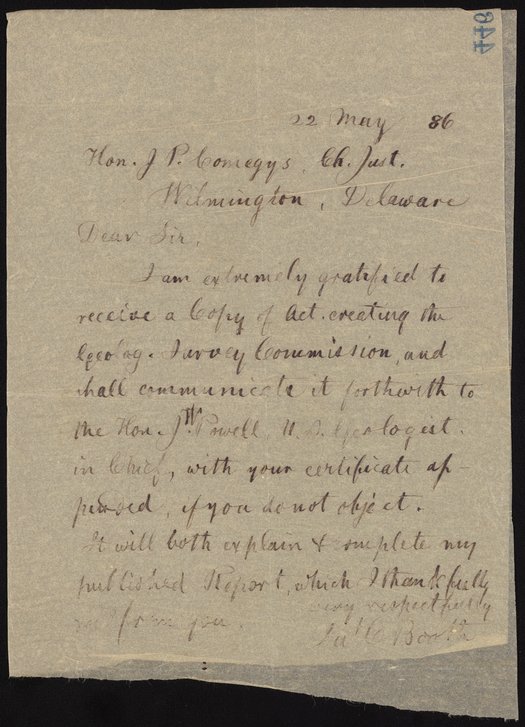 446
22 May 86
Hon. J P. Comegys, Ch. Just.
Wilmington, Delaware
Dear Sir,
I am extremely gratified to
receive a Copy of Act. creating the
Geolog. Survey Commission, and
shall communicate it forthwith to
the Hon. J W Powell, U. S. Geologist.
in Chief, with your certificate ap-
pended, if you do not object.
It will both explain & complete my
published Report, which I thankfully
from you.
very respectfully
Booth